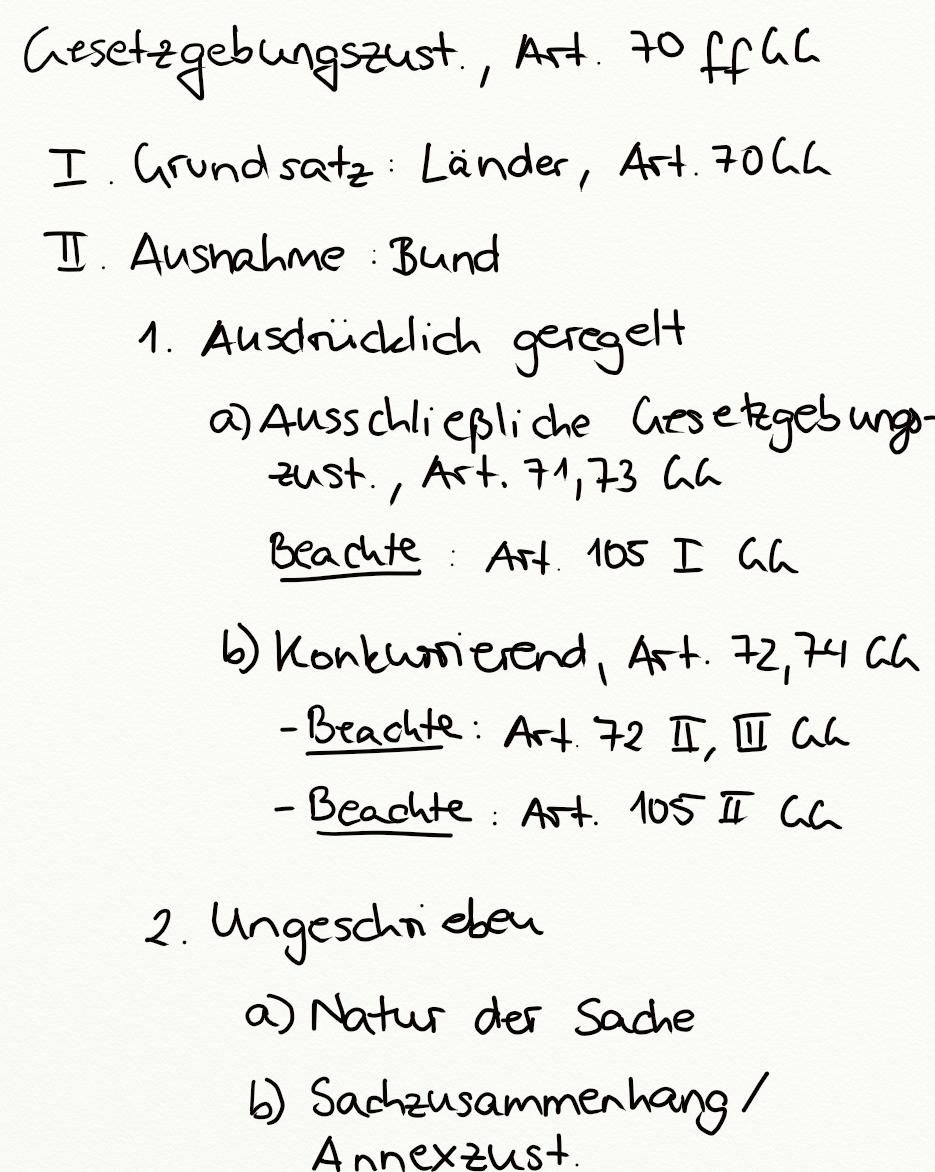 Gesetzgebungszust., Art. 70 ff GG
I. Grundsatz: Länder, Art. 70 GG
II. Ausnahme: Bund
1. Ausdrücklich geregelt
a) Ausschließliche Gesetzgebungs-
zust., Art. 71, 73 GG
Beachte: Art. 105 I GG
b) Konkurrierend, Art. 72, 74 GG
- Beachte: Art. 72 II, III GG
- Beachte: Art. 105 II GG
2. Ungeschrieben
a) Natur der Sache
b) Sachzusammenhang/
Annexzust.